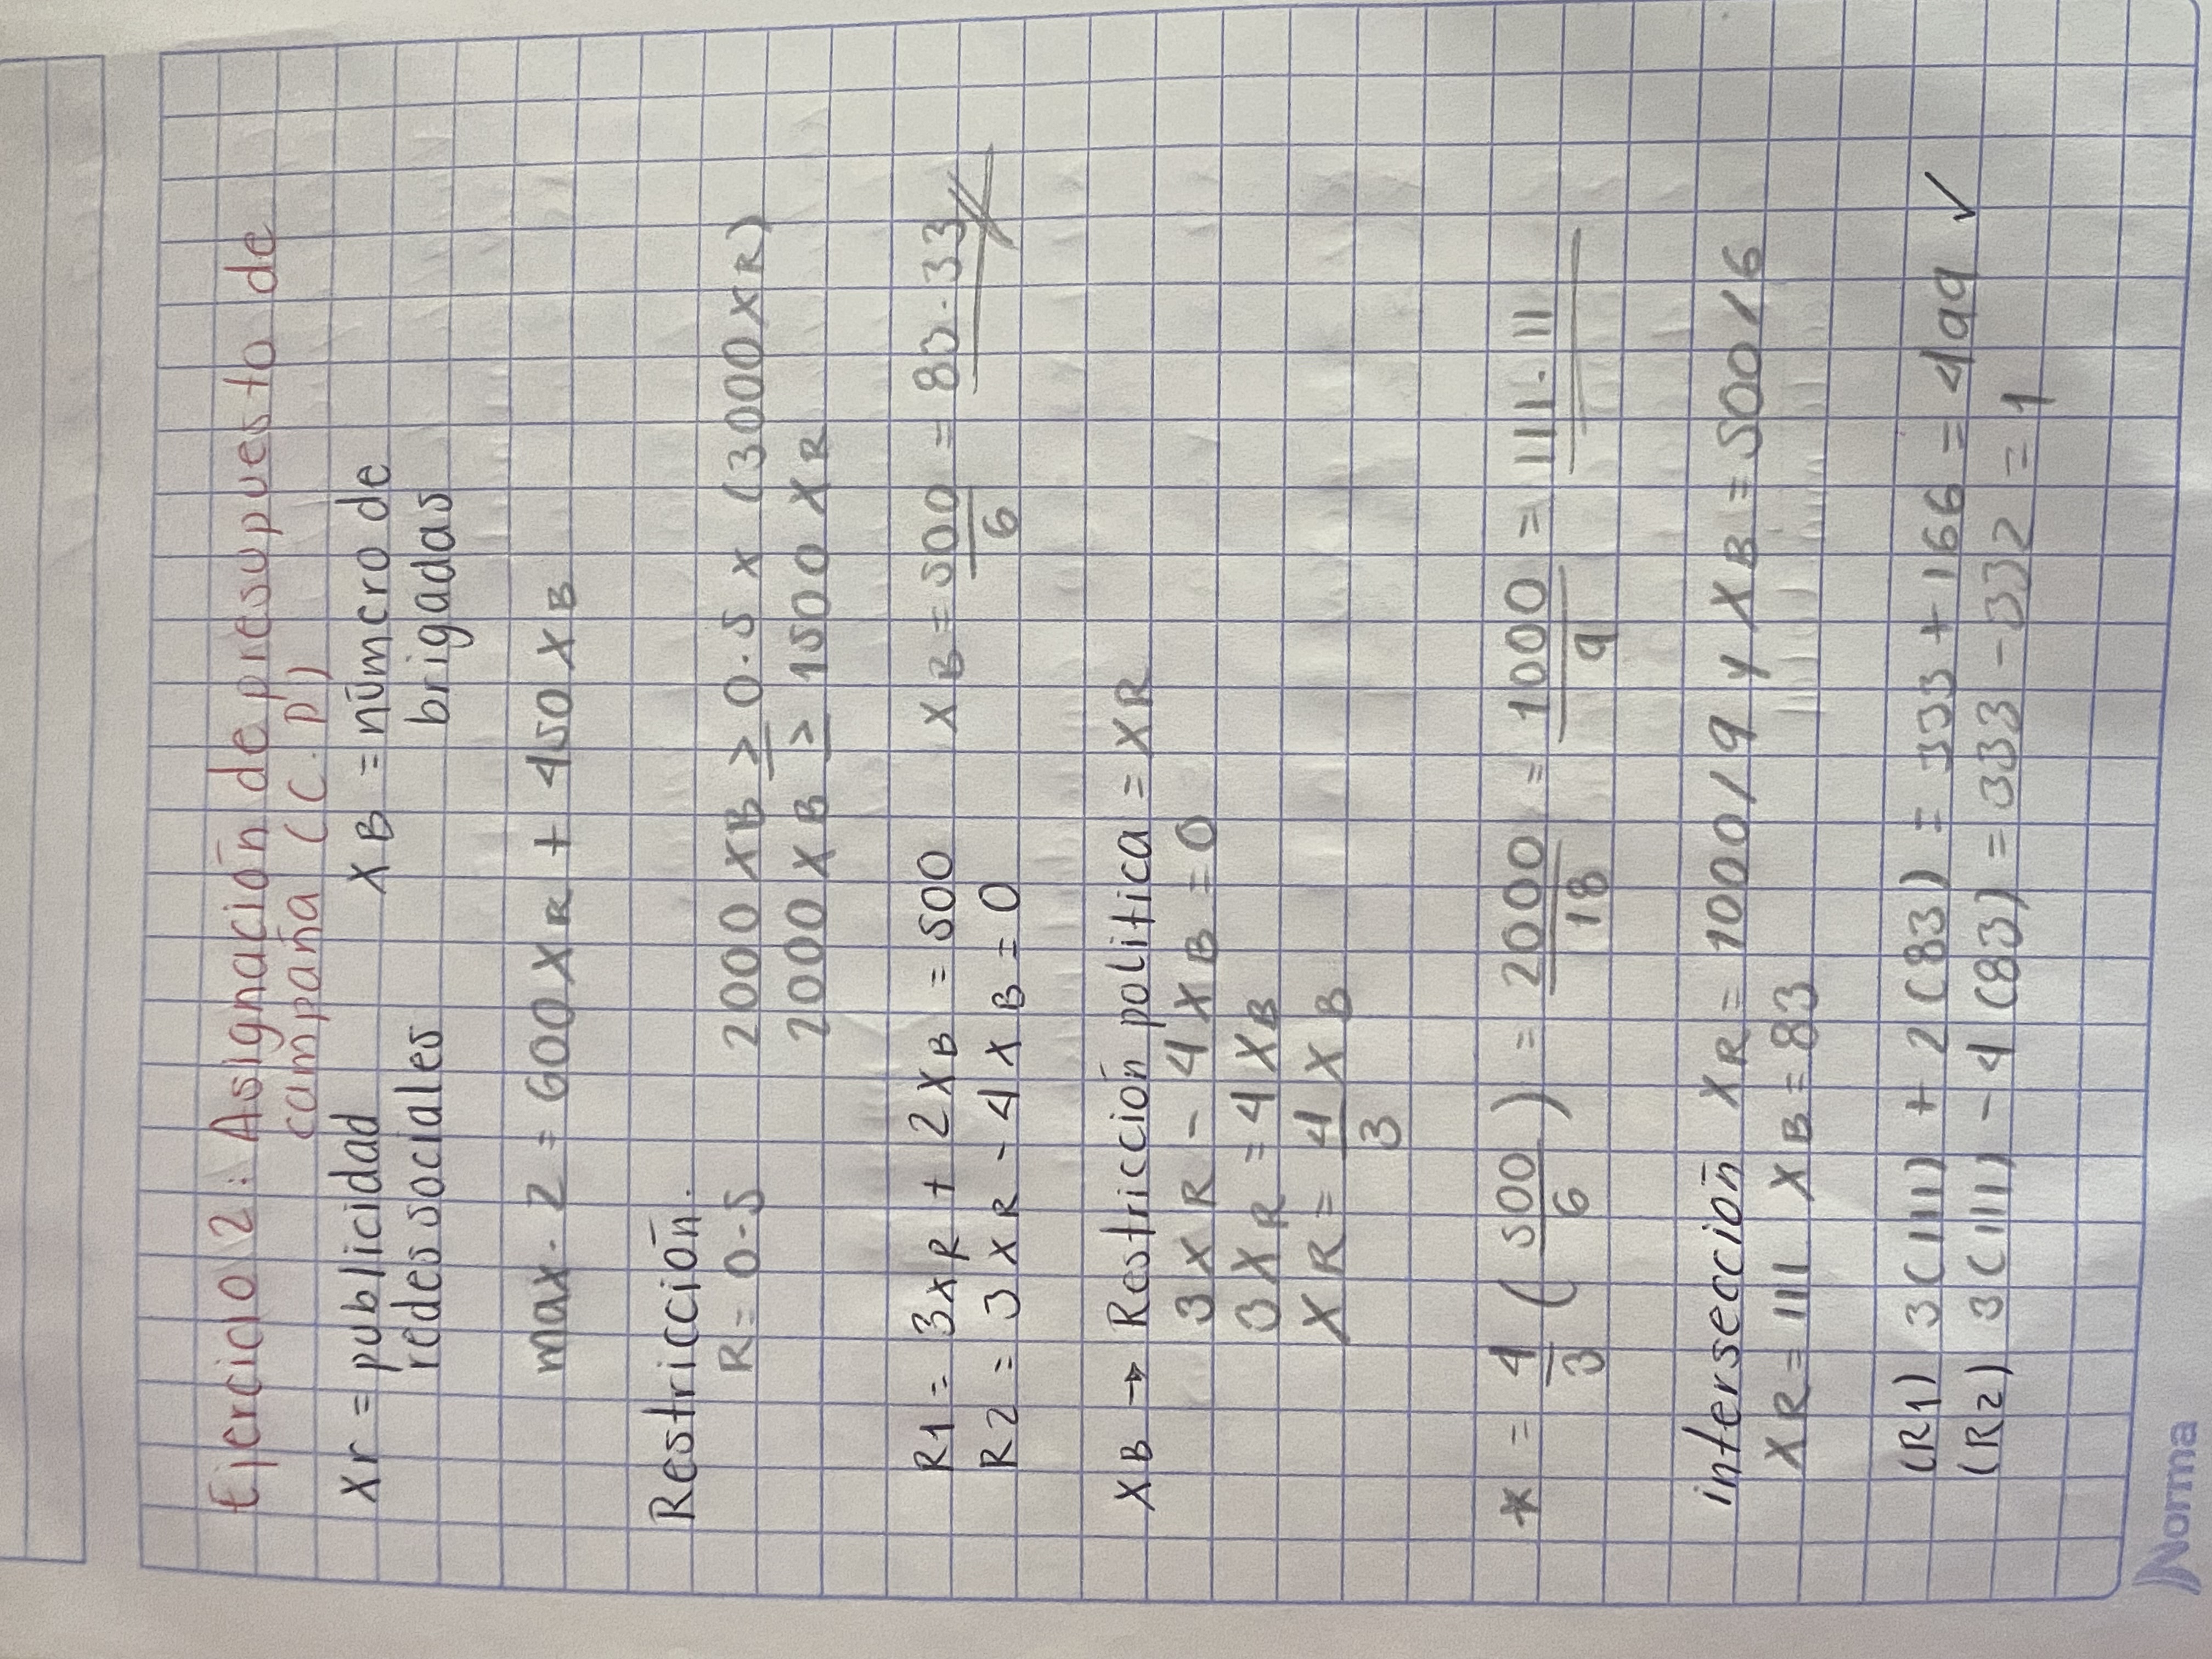 Ejercicio 2: Asignación de presupuesto de
campaña (C.P)
Xr = publicidad redes sociales
XB = número de brigadas
max. Z = 600 XR + 450 XB
Restricción.
R = 0.5 2000 XB ≥ 0.5 x (3000 XR)
2000 XB ≥ 1500 XR
R1 = 3XR + 2XB = 500 XB = 500/6 = 83.33
R2 = 3XR - 4XB = 0
XB → Restricción politica = XR
3XR - 4XB = 0
3XR = 4XB
XR = 4/3 XB
* = 4/3 (500/6) = 2000/18 = 1000/9 = 111.11
intersección XR = 1000/9 y XB = 500/6
XR = 111 XB = 83
(R1) 3(111) + 2(83) = 333 + 166 = 499 ✓
(R2) 3(111) - 4(83) = 333 - 332 = 1
Norma